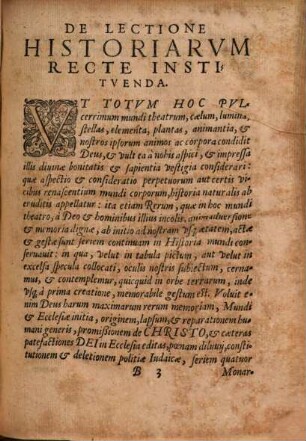 DE LECTIONE
HISTORIARVM
RECTE INSTI-
TVENDA.
VT TOTVM HOC PVL-
cerrimum mundi theatrum, cælum, lumina,
stellas, elementa, plantas, animantia, &
nostros ipsorum animos ac corpora condidit
Deus, & vult ea à nobis aspici, & impressa
illis diuinæ bonitatis & sapientiæ vestigia considerari:
quæ aspectio & consideratio perpetuorum aut certis vi-
cibus renascentium mundi corporum, historia naturalis ab
eruditis appellatur: ita etiam Rerum, quæ in hoc mundi
theatro, à Deo & hominibus illius incolis, animaduersione
& memoria dignæ, ab initio ad nostram vsq; ætatem, actæ
& gestæ sunt seriem continuam in Historia mundi con-
seruauit: in qua, velut in tabula pictum, aut velut in
excelsa specula collocati, oculis nostris subiectum, cerna-
mus, & contemplemur, quicquid in orbe terrarum, inde
vsq; à prima creatione, memorabile gestum est. Voluit e-
nim Deus harum maximarum rerum memoriam, Mundi
& Ecclesiæ initia, originem, lapsum, & reparationem hu-
mani generis, promissionem de CHRISTO, & cæteras
patefactiones DEI in Ecclesia editas, pœnam diluuij, consti-
tutionem & deletionem politiæ Iudaicæ, seriem quatuor
B 3 Monar-